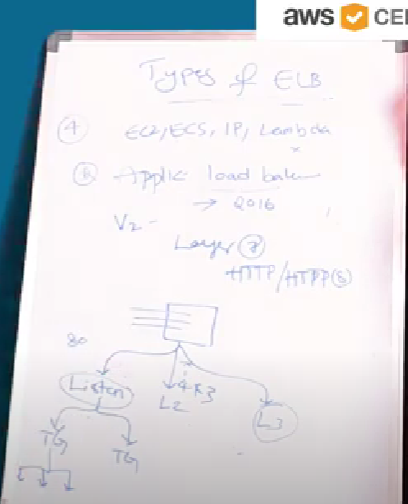 aws CE
Types of ELB
④ EC2/ECS, IP, Lambda
x
Applic load balan
→ 2016
V2 -
Layer ⑦
HTTP/HTTP(S)
80
Listen
443
L2
L3
TG
TG